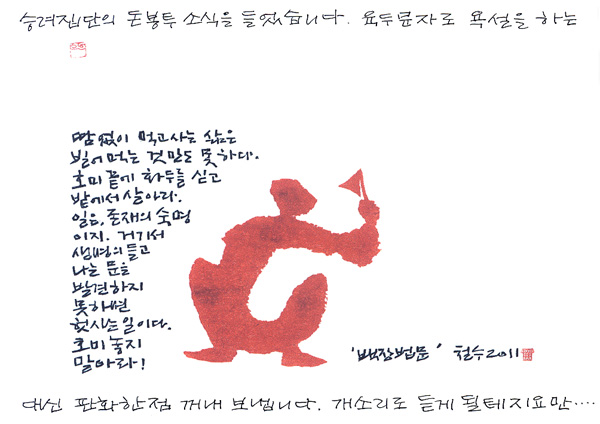 승려집단의 돈봉투 소식을 들었습니다. 육두문자로 욕설을 하는
땀없이 먹고사는 삶은
빌어먹는 것만도 못하다.
호미 끝에 화두를 싣고
밭에서 살아라.
일은, 존재의 숙명
이지. 거기서
생명의 들고
나는 문을
발견하지
못하면
헛사는 일이다.
호미 놓지
말아라!
'백장법문' 철수 2011
대신 판화 한점 꺼내 보냅니다. 개소리로 듣게 될테지요만····